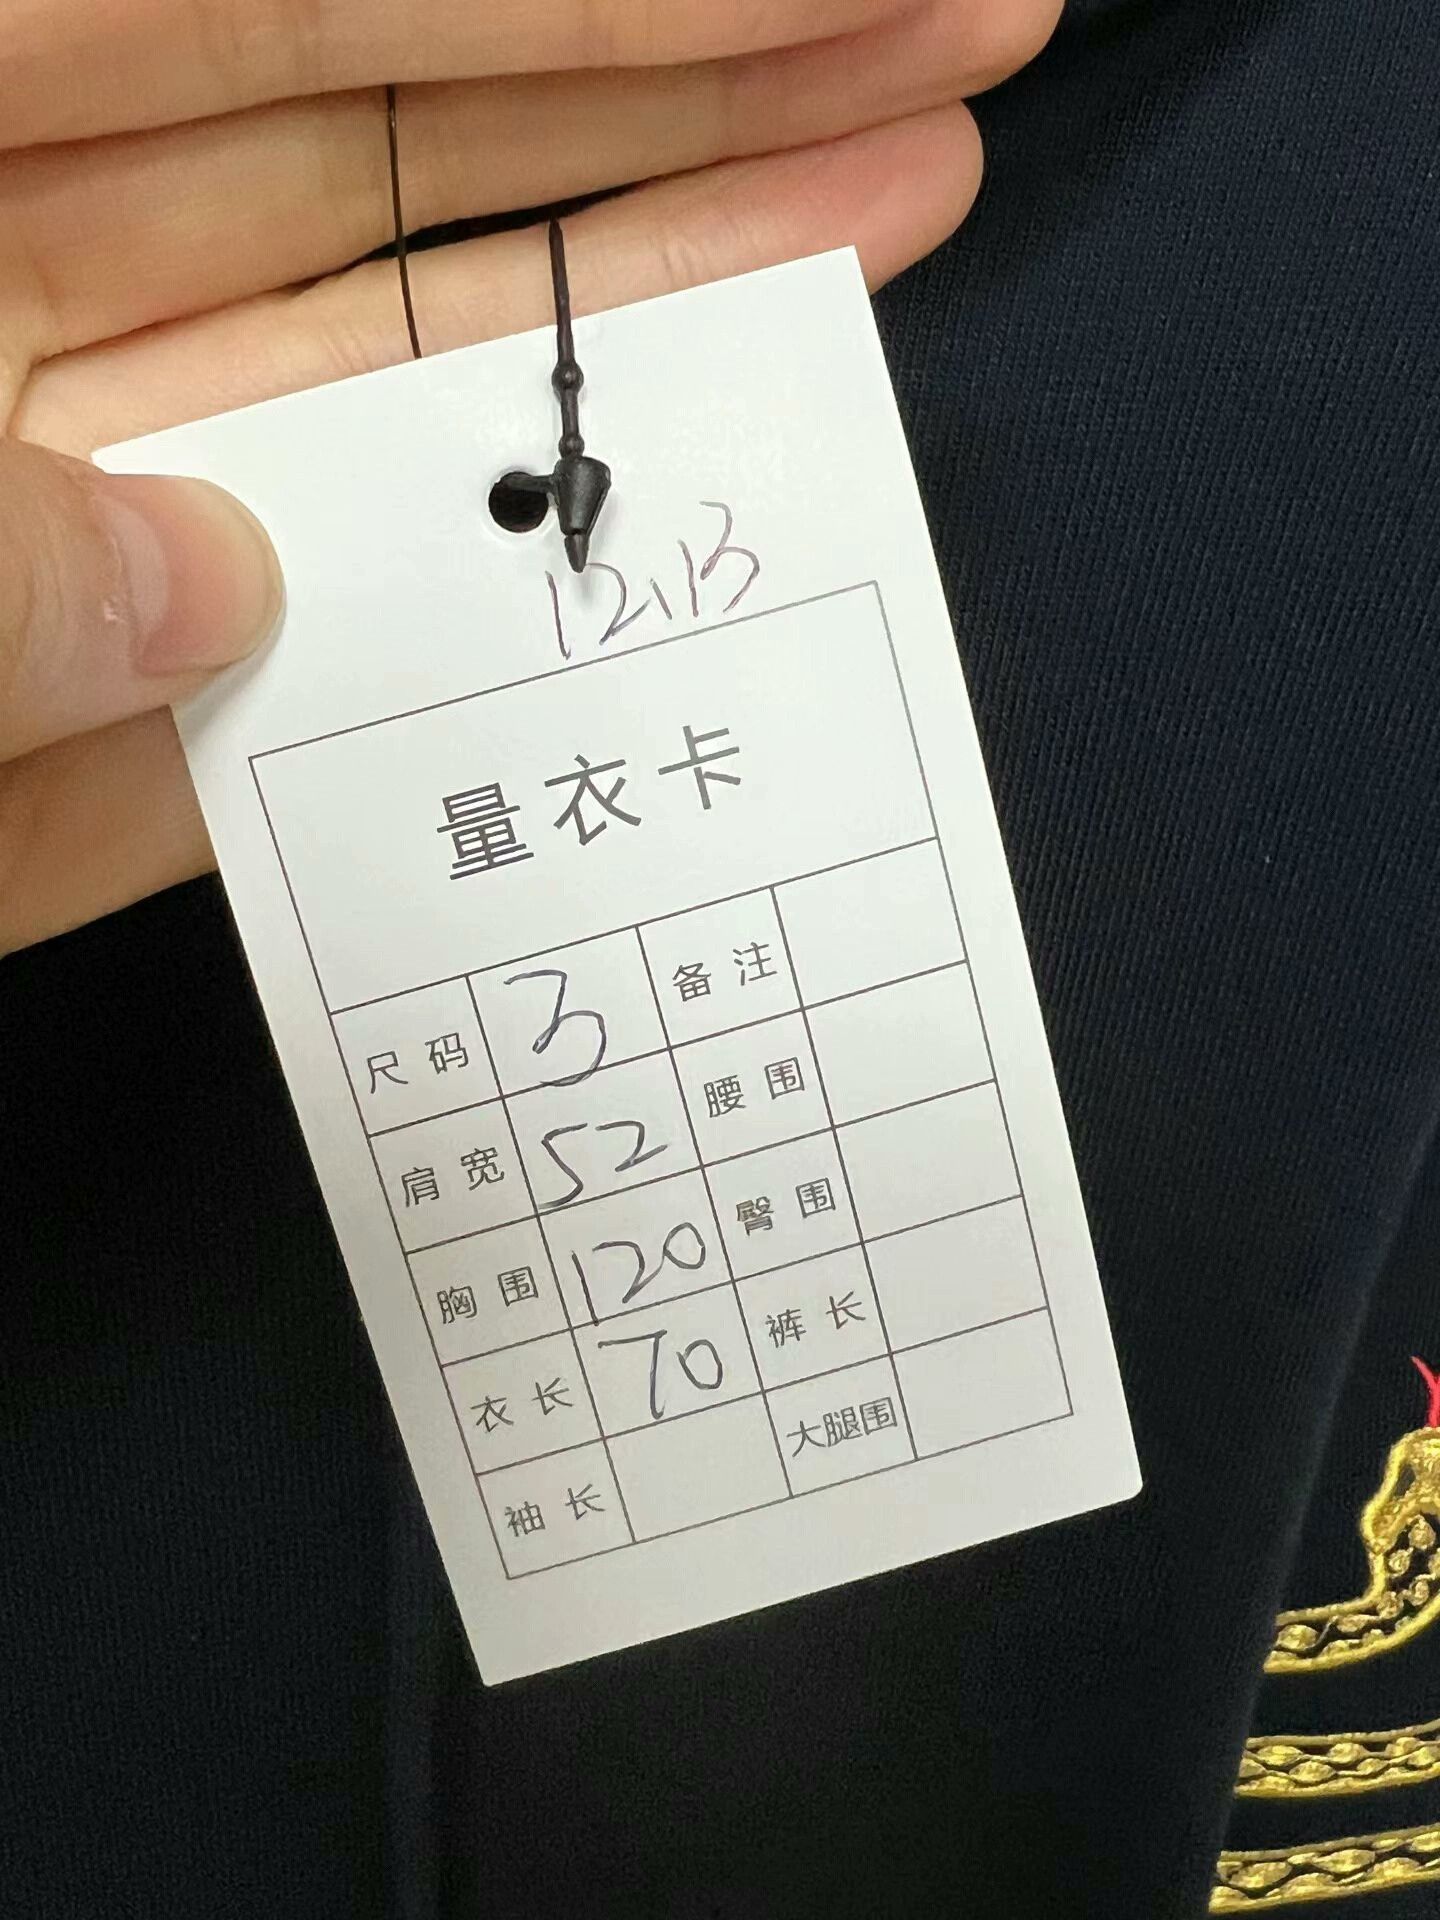 12.13
量衣卡
尺码 3 备注
肩宽 52 腰围
胸围 120 臀围
衣长 70 裤长
袖长 大腿围